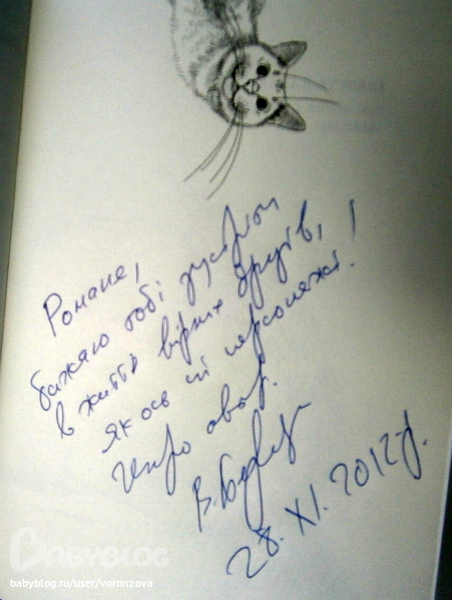 Романе,
бажаю тобі зустріти
в житті вірних друзів,
як ось ці персонажі!
Щиро автор.
28. XI. 2012 р.
BABYBLOG
babyblog.ru/user/voronzova